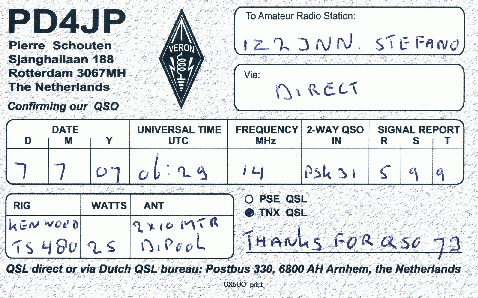 PD4JP
Pierre Schouten
Sjanghallaan 188
Rotterdam 3067MH
The Netherlands
Confirming our QSO
VERON
To Amateur Radio Station:
IZ2JNN. STEFANO
Via:
DIRECT
DATE UNIVERSAL TIME FREQUENCY 2-WAY QSO SIGNAL REPORT
D M Y UTC MHz IN R S T
7 7 07 06:29 14 PSK31 5 9 9
RIG WATTS ANT
KENWOOD 2x10 MTR
TS 480 25 DIPOOL
PSE QSL
TNX QSL
THANKS FOR QSO 73
QSL direct or via Dutch QSL bureau: Postbus 330, 6800 AH Arnhem, the Netherlands